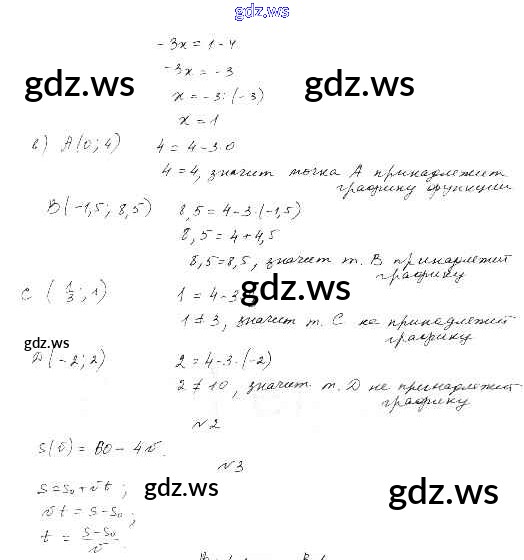 gdz.ws
-3x = 1-4
-3x = -3
gdz.ws gdz.ws
x = -3:(-3)
x = 1
в) A(0; 4) 4 = 4-3·0
4 = 4, значит точка A принадлежит
графику функции
B(-1,5; 8,5) 8,5 = 4-3·(-1,5)
8,5 = 4+4,5
8,5 = 8,5, значит т. B принадлежит
графику
gdz.ws
C (1/3; 1) 1 = 4-3
1 ≠ 3, значит т. C не принадлежит
графику
gdz.ws
D(-2; 2) 2 = 4-3·(-2)
2 ≠ 10, значит т. D не принадлежит
графику
№2
s(v) = 80 - 4v.
№3
s = s₀ + vt;
gdz.ws gdz.ws
vt = s - s₀
t = (s-s₀)/v